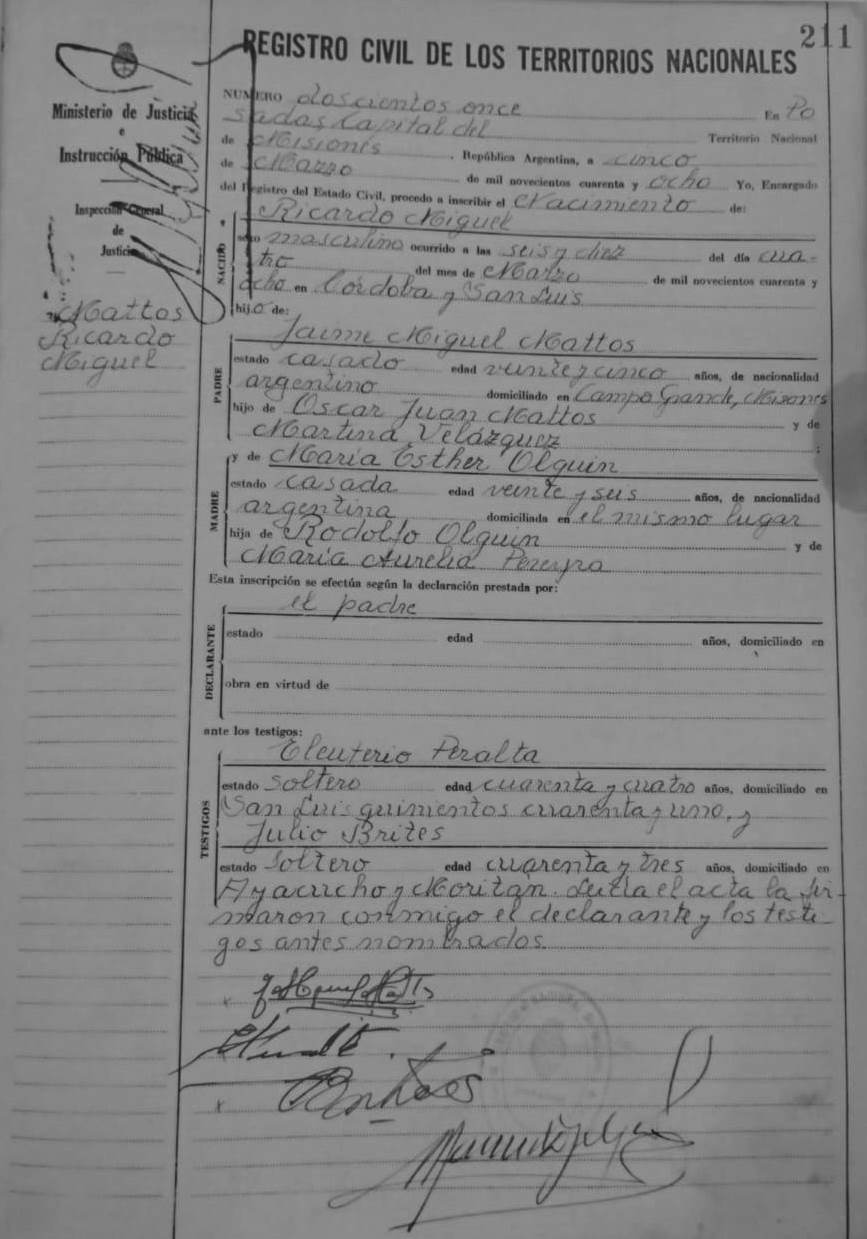 211
REGISTRO CIVIL DE LOS TERRITORIOS NACIONALES
Ministerio de Justicia
e
Instrucción Pública
Inspección General
de
Justicia
Mattos
Ricardo
Miguel
NUMERO doscientos once En Po
sadas Capital del Territorio Nacional
de Misiones, República Argentina, a cinco
de Marzo de mil novecientos cuarenta y ocho Yo, Encargado
del Registro del Estado Civil, procedo a inscribir el Nacimiento de:
NACIDO a
Ricardo Miguel
sexo masculino ocurrido a las seis y diez del día cua-
tro del mes de Marzo de mil novecientos cuarenta y
ocho en Córdoba y San Luis
hijo de:
PADRE
Jaime Miguel Mattos
estado casado edad veinte y cinco años, de nacionalidad
argentino domiciliado en Campo Grande, Misiones
hijo de Oscar Juan Mattos y de
Martina Velázquez ;
MADRE
y de María Esther Olguin
estado casada edad veinte y seis años, de nacionalidad
argentina domiciliada en el mismo lugar
hija de Rodolfo Olguin y de
María Aurelia Pereyra
Esta inscripción se efectúa según la declaración prestada por:
DECLARANTE
el padre
estado edad años, domiciliado en
obra en virtud de
ante los testigos:
TESTIGOS
Eleuterio Peralta
estado soltero edad cuarenta y cuatro años, domiciliado en
San Luis quinientos cuarenta y uno, y
Julio Brites
estado soltero edad cuarenta y tres años, domiciliado en
Ayacucho y Moritán. Leída el acta la fir-
maron conmigo el declarante y los testi-
gos antes nombrados.